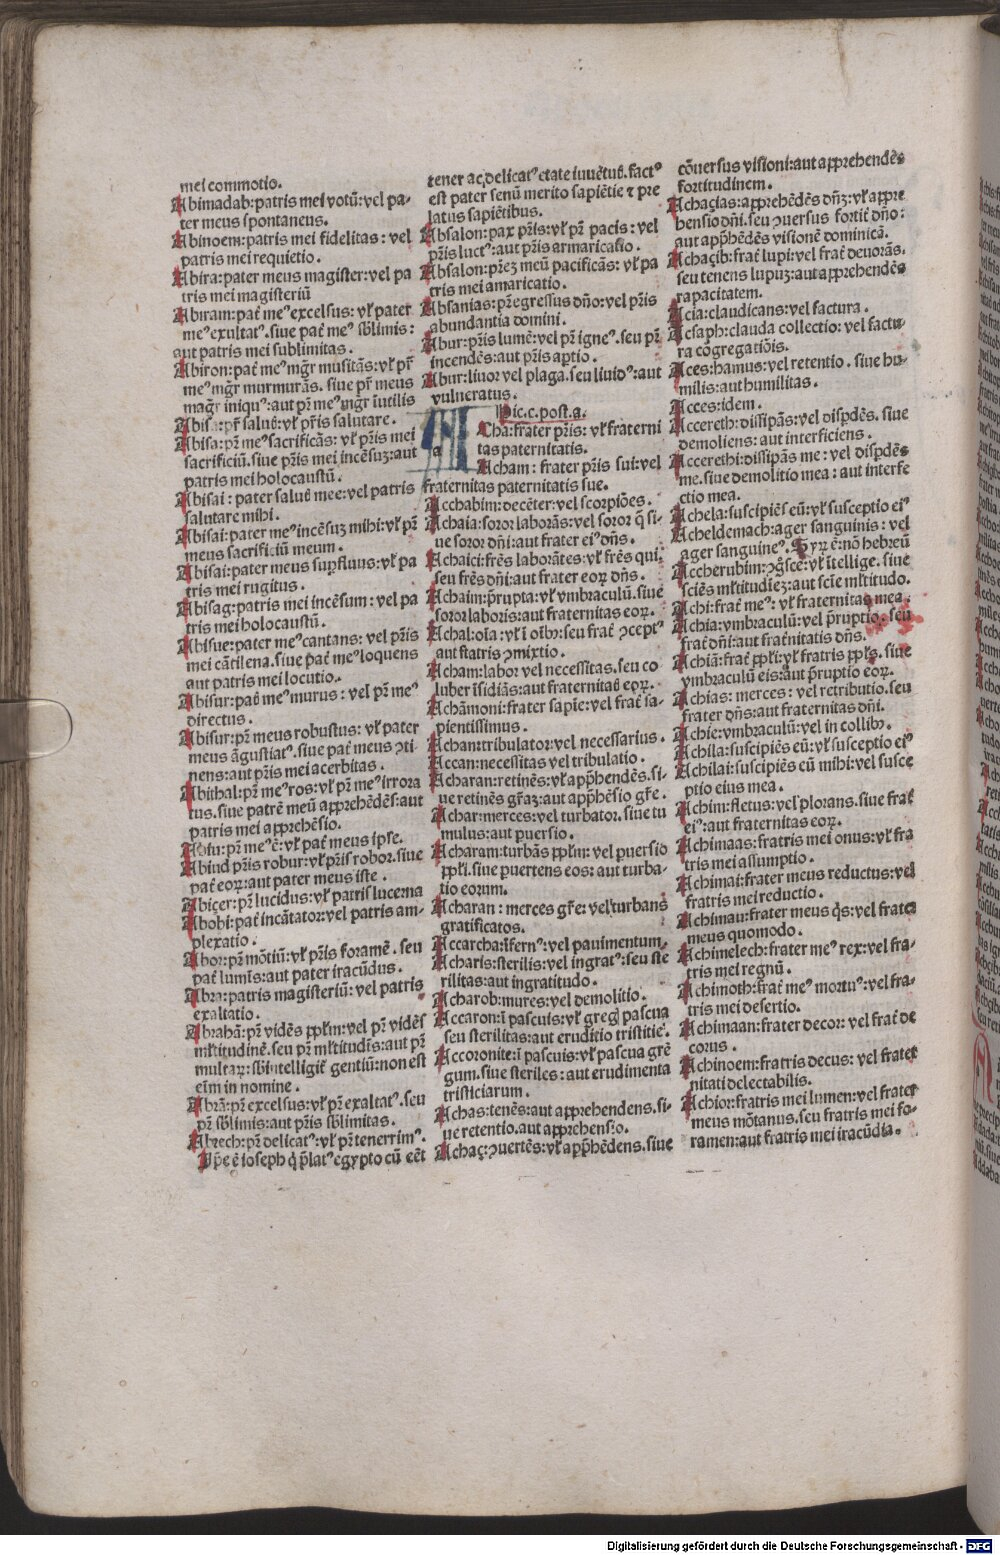 mei commotio.
Abimadab: patris mei votū: vel pa-
ter meus spontaneus.
Abinoem: patris mei fidelitas: vel
patris mei requietio.
Abira: pater meus magister: vel pa
tris mei magisteriū
Abiram: pať meꝰ excelsus: vľ pater
meꝰ exultatꝰ. siue pať meꝰ sb̄limis:
aut patris mei sublimitas.
Abiron: pať meꝰ mgr̄ musitās: vľ pr̄
meꝰ mgr̄ murmurās. siue pr̄ meus
magr̄ iniquꝰ: aut pr̄ meꝰ mgr̄ īutilis
Abisa: pr̄ saluē: vľ pr̄is salutare.
Abisa: pr̄ meꝰ sacrificās: vľ pr̄is mei
sacrificiū. siue pr̄is mei incēsuꝫ: aut
patris mei holocaustū.
Abisai: pater saluē mee: vel patris
salutare mihi.
Abisai: pater meꝰ incēsuꝫ mihi: vľ pr̄
meus sacrificiū meum.
Abisai: pater meus suꝑfluus: vľ pa
tris mei rugitus.
Abisag: patris mei incēsum: vel pa
tris mei holocaustū.
Abisue: pater meꝰ cantans: vel pr̄is
mei cātilena. siue pať meꝰ loquens
aut patris mei locutio.
Abisur: pať meꝰ murus: vel pr̄ meꝰ
directus.
Abisur: pr̄ meus robustus: vľ pater
meus āgustiatꝰ. siue pať meus ꝯti-
nens: aut pr̄is mei acerbitas.
Abithal: pr̄ meꝰ ros: vľ pr̄ meꝰ irrora
tus. siue patrē meū apprehēdēs: aut
patris mei apprehēsio.
Abiu: pr̄ meꝰ ē: vľ pať meus ipse.
Abiud pr̄is robur: vľ pr̄is robor. siue
pať eoꝝ: aut pater meus iste.
Abiçer: pr̄ lucidus: vľ patris lucerna
Abobi: pať incātator: vel patris am-
plexatio.
Abor: pr̄ mōtiū: vľ pr̄is foramē. seu
pať lumīs: aut pater iracūdus.
Abra: patris magisteriū: vel patris
exaltatio.
Abrahā: pr̄ vidēs ppľm: vel pr̄ vidēs
mľtitudinē. seu pr̄ mľtitudīs: aut pr̄
multaꝝ: sb̄intelligiť gentiū: non est
eīm in nomine.
Abrā: pr̄ excelsus: vľ pr̄ exaltatꝰ. seu
pr̄ sb̄limis: aut pr̄is sb̄limitas.
Abrech: pr̄ delicatꝰ: vľ pr̄ tenerrimꝰ.
Ip̄e ē ioseph q̄ p̄latꝰ egypto cū eēt
tener ac delicatꝰ etate iuuētuť. factꝰ
est pater senū merito sapiētie ⁊ pre
latus sapiētibus.
Absalon: pax pr̄is: vľ pr̄ pacis: vel
pr̄is luctꝰ: aut pr̄is armaricatio.
Absalon: pr̄eꝫ meū pacificās: vľ pa
tris mei amaricatio.
Absanias: pr̄ egressus dn̄o: vel pr̄is
abundantia domini.
Abur: pr̄is lumē: vel pr̄ igneꝰ. seu pr̄
incendēs: aut pr̄is aptio.
Abur: liuor vel plaga. seu liuidꝰ: aut
vulneratus.
Hic. c. post. a.
Acha: frater pr̄is: vľ fraterni
tas paternitatis.
Acham: frater pr̄is sui: vel
fraternitas paternitatis sue.
Acchabim: decēter: vel scorpiões.
Achaia: soror laborās: vel soror q̄ si-
ue soror dn̄i: aut frater eiꝰ dn̄s.
Achaici: frēs laborātes: vľ frēs qui.
seu frēs dn̄i: aut frater eoꝝ dn̄s.
Achaim: p̄rupta: vľ vmbraculū. siue
soror laboris: aut fraternitas eoꝝ.
Achal: oīa: vľ ī oībꝰ: seu frať ꝯceptꝰ
aut statris ꝯmixtio.
Acham: labor vel necessitas. seu co
luber īsidiās: aut fraternitas eoꝝ.
Achāmoni: frater sapīe: vel frať sa-
pientissimus.
Achan: tribulator: vel necessarius.
Accan: necessitas vel tribulatio.
Acharan: retinēs: vľ app̄hendēs. si-
ue retinēs gr̄aꝫ: aut app̄hēsio gr̄e.
Achar: merces: vel turbator. siue tu
mulus: aut ꝑuersio.
Acharam: turbās ppľm: vel ꝑuersio
ppľi. siue ꝑuertens eos: aut turba-
tio eorum.
Acharan: merces gr̄e: vel turbans
gratificatos.
Accarcha: īfernꝰ: vel pauimentum.
Acharis: sterilis: vel ingratꝰ: seu ste
rilitas: aut ingratitudo.
Acharob: mures: vel demolitio.
Accaron: ī pascuis: vľ gregꝭ pascua
seu sterilitas: aut eruditio tristitie.
Accoronite: ī pascuis: vľ pascua gre
gum. siue steriles: aut erudimenta
tristiciarum.
Achas: tenēs: aut apprehendens. si-
ue retentio. aut apprehensio.
Achaç: ꝯuertēs: vľ app̄hēdens. siue
cōuersus visioni: aut apprehendēs
fortitudinem.
Achaçias: apprehēdēs dn̄ꝫ: vľ appre
hensio dn̄i. seu ꝯuersus fortiť dn̄o:
aut app̄hēdēs visionē dominicā.
Achaçib: frať lupi: vel frať deuorās.
seu tenens lupuꝫ: aut apprehendēs
rapacitatem.
Acia: claudicans: vel factura.
Acsaph: clauda collectio: vel factu-
ra cōgregatiōis.
Aces: hamus: vel retentio. siue hu-
milis: aut humilitas.
Acces: idem.
Accereth: dissipās: vel disꝑdēs. siue
demoliens: aut interficiens.
Accerethi: dissipās me: vel disꝑdēs
me. siue demolitio mea: aut interfe
ctio mea.
Achela: suscipiēs eū: vľ susceptio eiꝰ
Acheldemach: ager sanguinis: vel
ager sanguineꝰ. Syꝝ ē: nō hebreū
Accherubim: ꝯgsce: vľ ītellige. siue
sciēs mľtitudieꝫ: aut scīe mľtitudo.
Achi: frať meꝰ: vľ fraternitas mea.
Achia: vmbraculū: vel p̄ruptio. seu
frať dn̄i: aut fraťnitatis dn̄s.
Achiā: frať ppľi: vľ fratris ppľs. siue
vmbraculū eis: aut p̄ruptio eoꝝ.
Achias: merces: vel retributio. seu
frater dn̄s: aut fraternitas dn̄i.
Achie: vmbraculū: vel in collibꝰ.
Achila: suscipiēs eū: vľ susceptio eiꝰ
Achilai: suscipiēs eū mihi: vel susce
ptio eius mea.
Achim: fletus: vel plorans. siue frať
eiꝰ: aut fraternitas eoꝝ.
Achimaas: fratris mei onus: vľ fra
tris mei assumptio.
Achimai: frater meus reductus: vel
fratris mei reductio.
Achimau: frater meus q̄s: vel frater
meus quomodo.
Achimelech: frater meꝰ rex: vel fra-
tris mei regnū.
Achimoth: frať meꝰ mortuꝰ: vel fra-
tris mei desertio.
Achimaan: frater decor: vel frať de
corus.
Achinoem: fratris decus: vel frater
nitati delectabilis.
Achior: fratris mei lumen: vel frater
meus mōtanus. seu fratris mei fo-
ramen: aut fratris mei iracūdia.
Digitalisierung gefördert durch die Deutsche Forschungsgemeinschaft - DFG